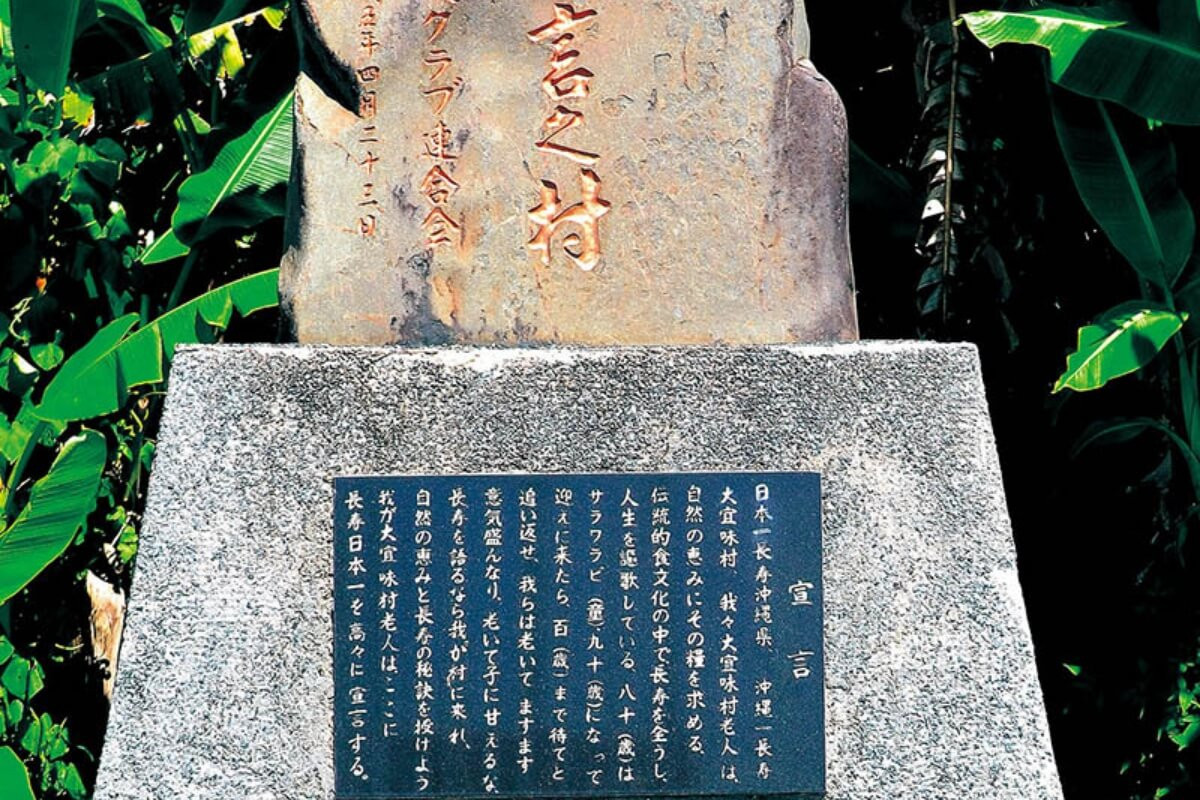 言之村
クラブ連合会
五年四月二十三日
宣言
日本一長寿沖縄県、沖縄一長寿
大宜味村、我々大宜味村老人は、
自然の恵みにその糧を求める、
伝統的食文化の中で長寿を全うし、
人生を謳歌している。八十(歳)は
サラワラビ(童)九十(歳)になって
迎えに来たら、百(歳)まで待てと
追い返せ、我らは老いてますます
意気盛んなり、老いて子に甘えるな
長寿を語るなら我が村に来れ、
自然の恵みと長寿の秘訣を授けよう
我が大宜味村老人は、ここに
長寿日本一を高々に宣言する。